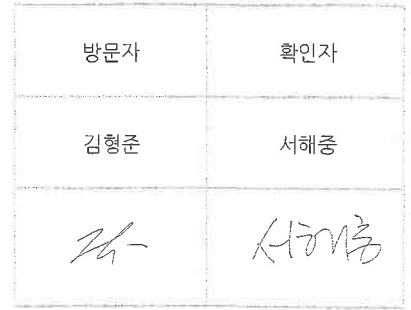 방문자 확인자
김형준 서해중
서해중